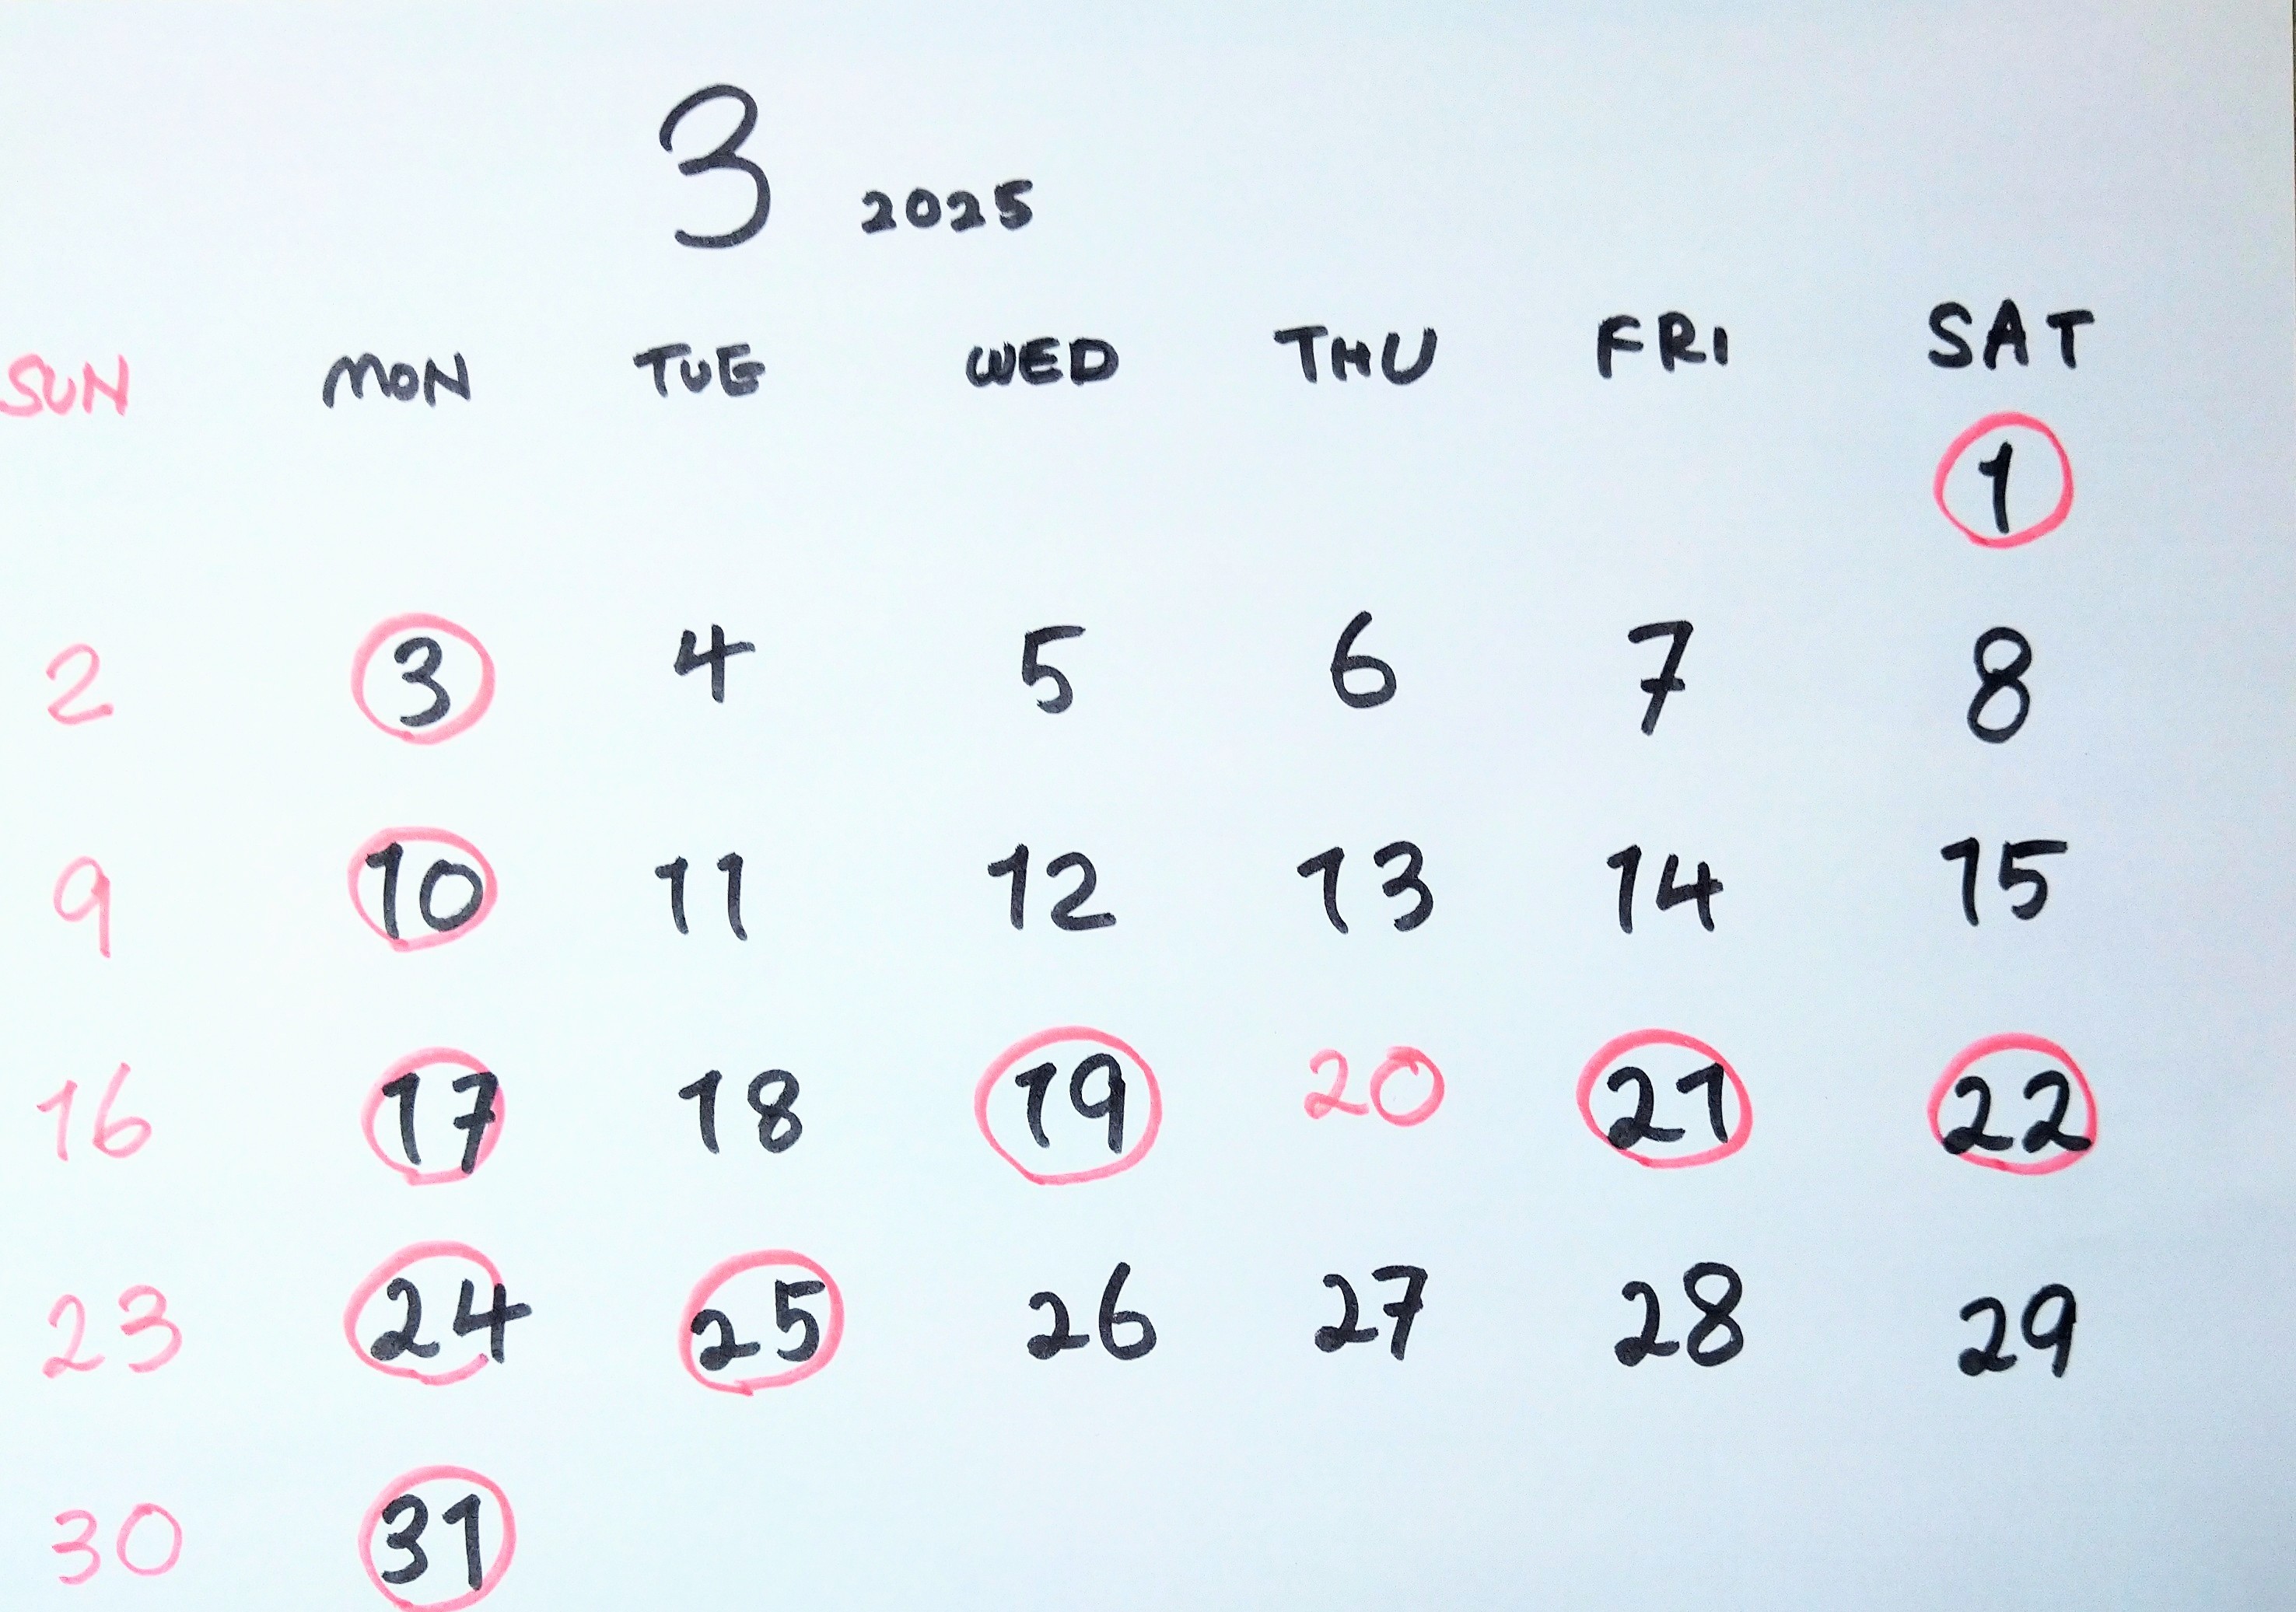 3 2025
SUN MON TUE WED THU FRI SAT
1
2 3 4 5 6 7 8
9 10 11 12 13 14 15
16 17 18 19 20 21 22
23 24 25 26 27 28 29
30 31